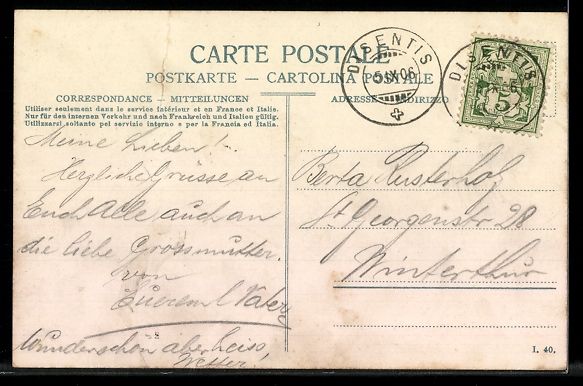 CARTE POSTALE
POSTKARTE – CARTOLINA POSTALE
CORRESPONDANCE – MITTEILUNGEN
Utiliser seulement dans le service intérieur et en France et Italie.
Nur für den internen Verkehr und nach Frankreich und Italien gültig.
Utilizzarsi soltanto pel servizio interno e per la Francia ed Italia.
ADRESSE INDIRIZZO
DISENTIS
5.IX.06
DISENTIS
5
Meine Lieben!
Herzliche Grüsse an
Euch Alle auch an
die liebe Grossmutter.
von
Eurem l. Vater
Wunderschön aber heiss
Wetter!
Berta Rusterholz
St. Georgenstr 28
Winterthur
I. 40.